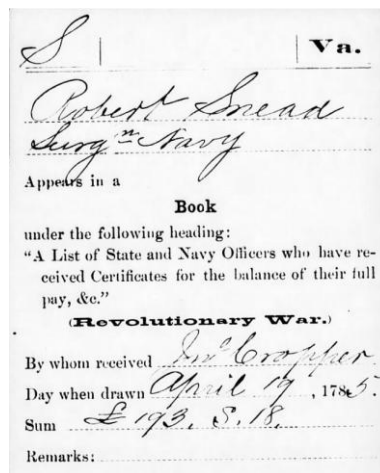 S | | Va.
Robert Snead
Surgn Navy
Appears in a
Book
under the following heading:
“A List of State and Navy Officers who have re-
ceived Certificates for the balance of their full
pay, &c.”
(Revolutionary War.)
By whom received Jno Cropper
Day when drawn April 19, 1785.
Sum £193. S. 18.
Remarks: